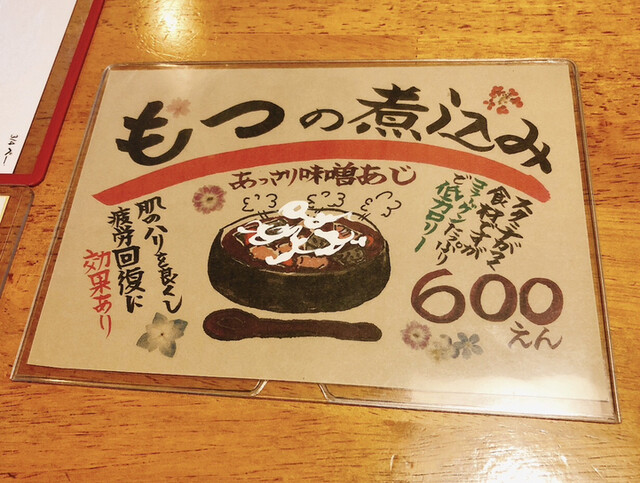 もつの煮込み
あっさり味噌あじ
スタミナがつく
食材ですが
コラーゲンたっぷり
ど低カロリー
肌のハリを良くし
疲労回復に
効果あり
600
えん